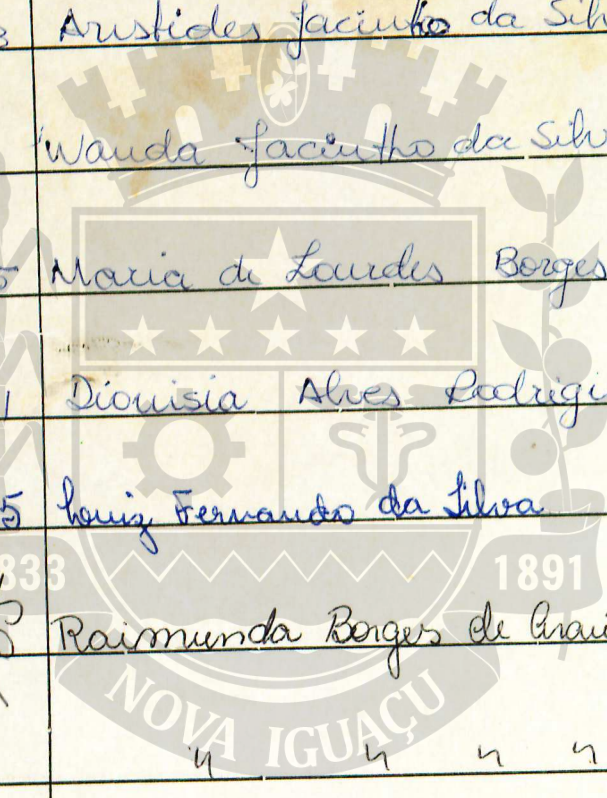 3 Aristides Jacintho da Silv
Wanda Jacintho da Silv
5 Maria de Lourdes Borges
1 Dionisia Alves Rodrig
5 Luiz Fernando da Silva
833 1891
Raimunda Borges de Arau
NOVA IGUAÇU
" " " "